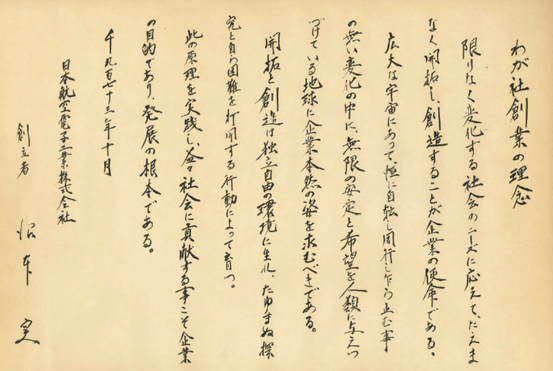 わが社創業の理念
限りなく変化する社会のニーズに応えて、たえま
なく開拓し、創造することが企業の使命である。
広大な宇宙にあって、恒に自転し周行し乍ら止む事
の無い変化の中に、無限の安定と希望を人類に与えつ
づけている地球に企業本然の姿を求むべきである。
開拓と創造は独立自由の環境に生れ、たゆまぬ探
究と自ら困難を打開する行動によって育つ。
此の原理を実践し、益々社会に貢献する事こそ企業
の目的であり、発展の根本である。
千九百七十三年十月
日本航空電子工業株式会社
創立者 沼本 実